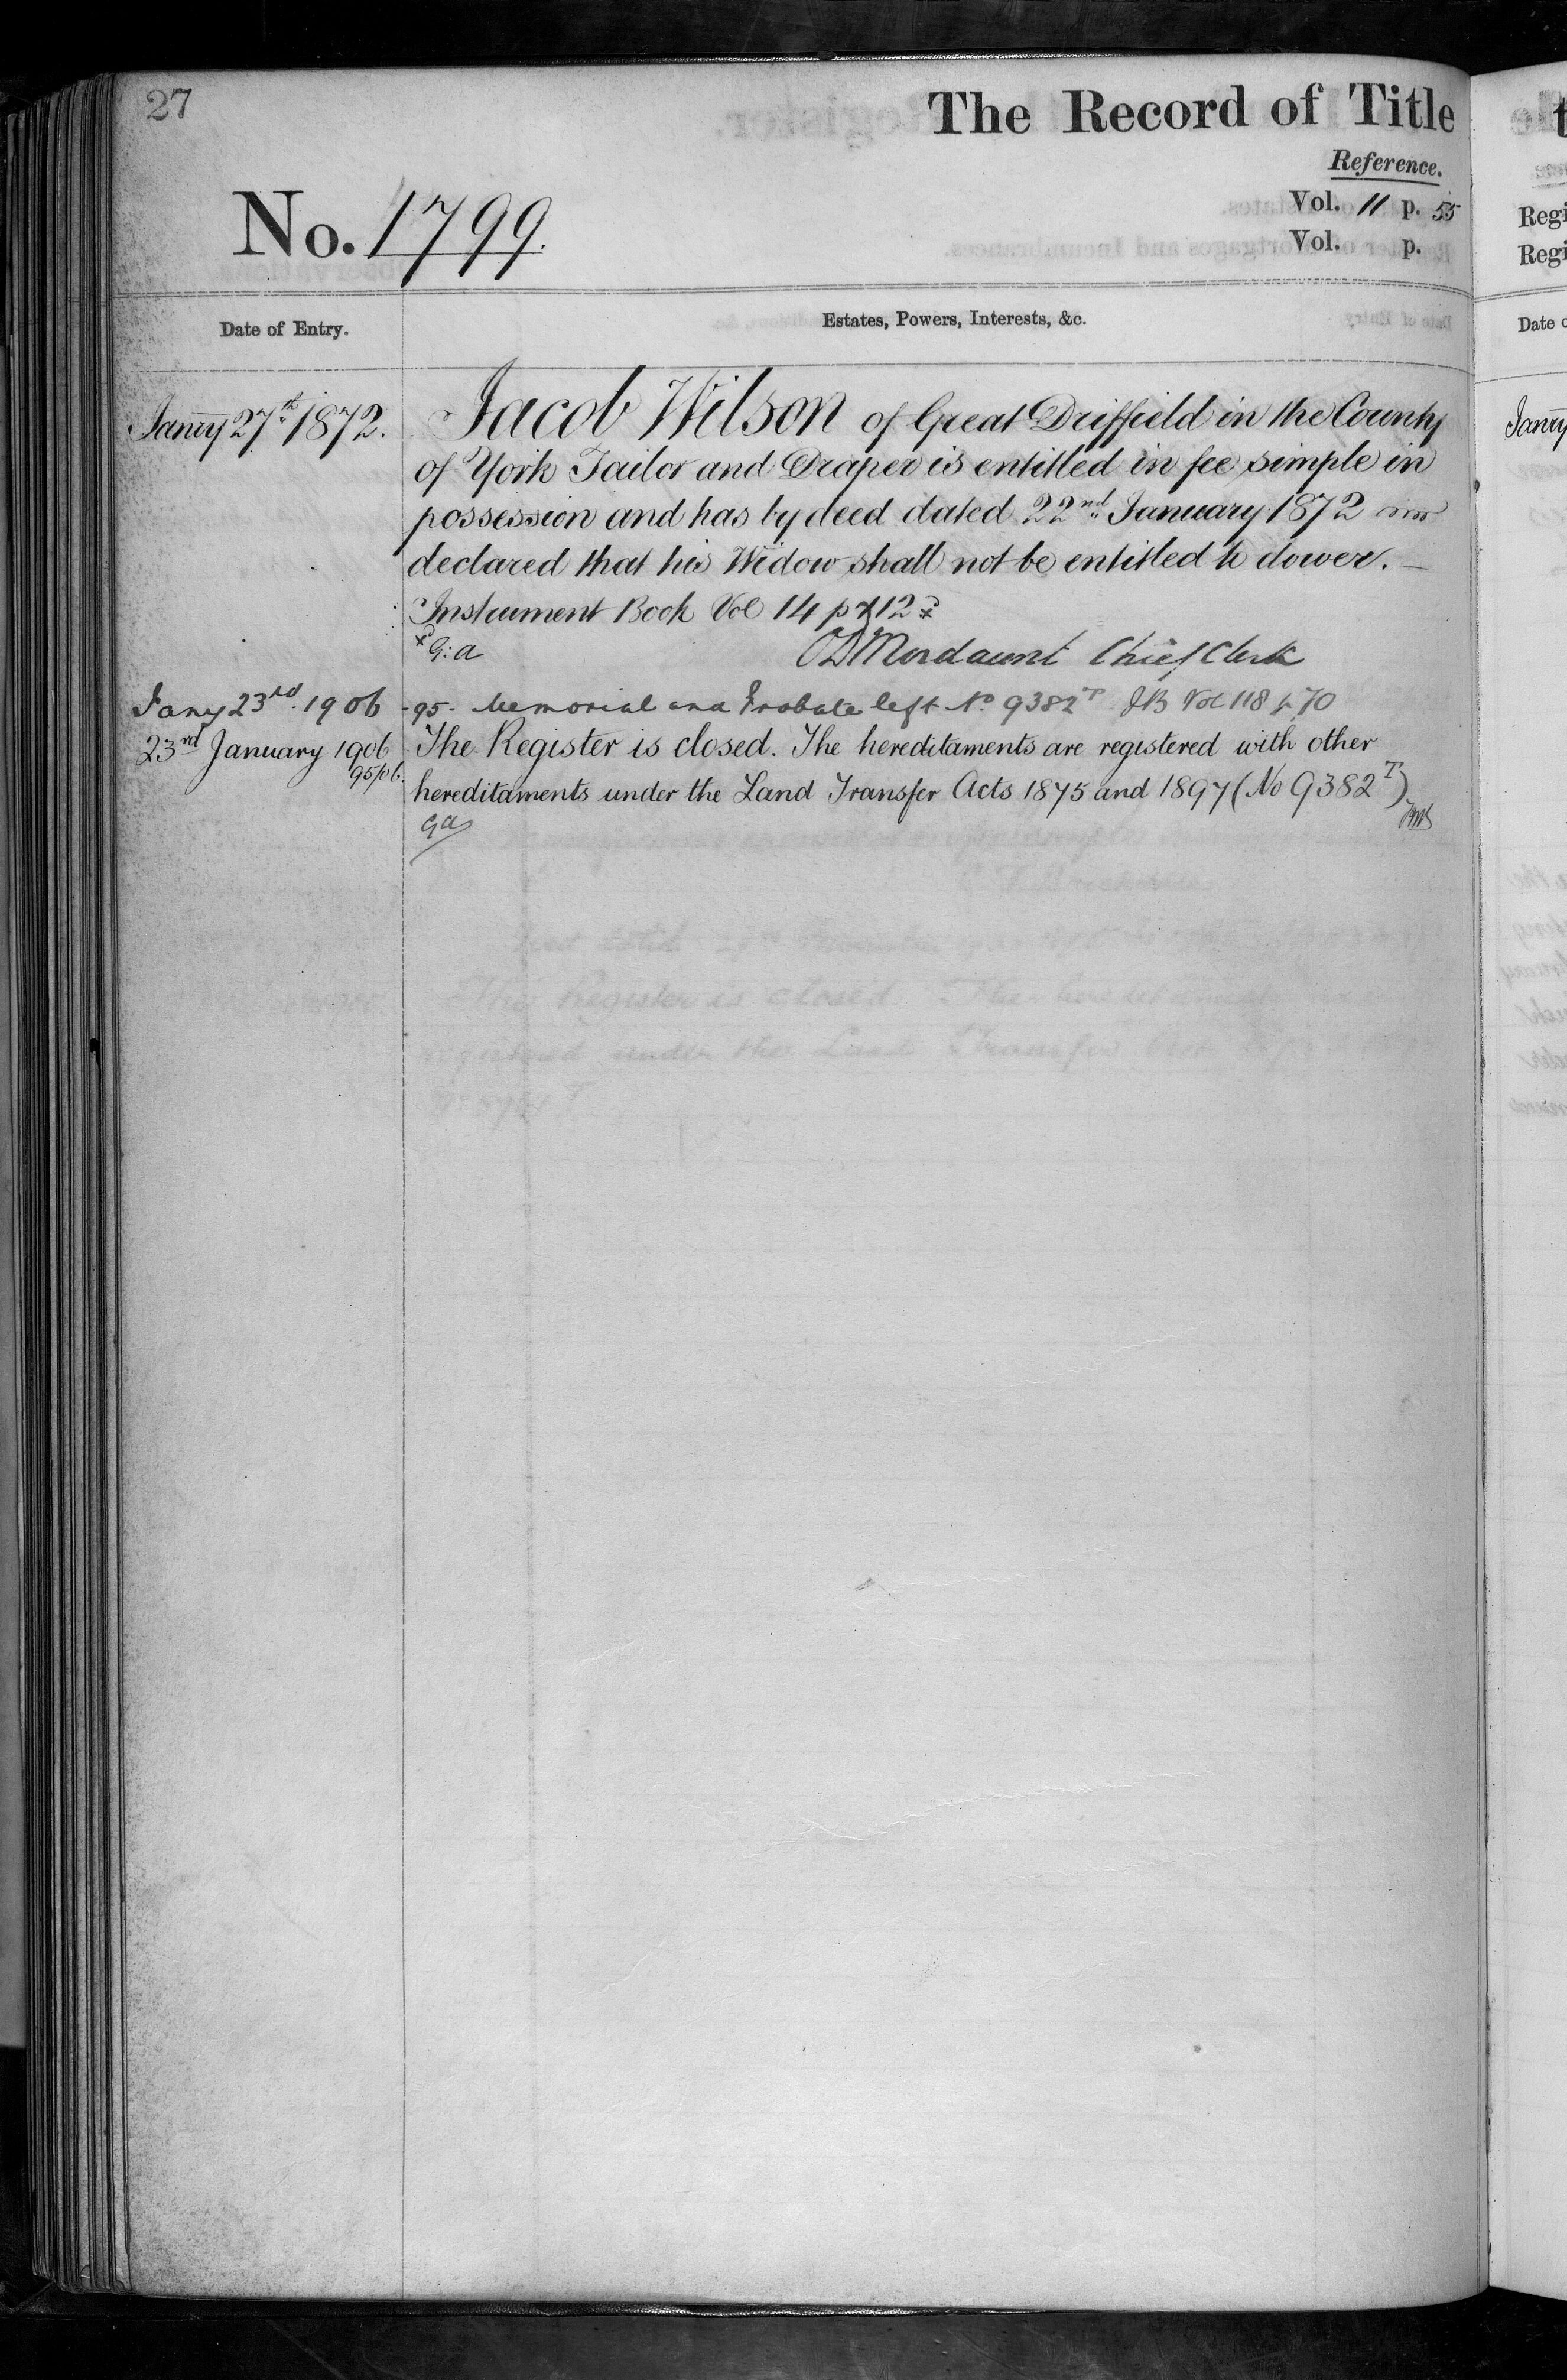 27
The Record of Title
Reference.
No. 1799.
Vol. 11 p. 55
Vol. p.
Date of Entry.
Estates, Powers, Interests, &c.
Janry 27th 1872.
Jacob Wilson of Great Driffield in the County
of York Tailor and Draper is entitled in fee simple in
possession and has by deed dated 22nd January 1872
declared that his Widow shall not be entitled to dower.
Instrument Book Vol 14 p 12
G: a
Mordaunt Chief Clerk
Jany 23rd. 1906
95. Memorial and Probate left No. 9382T IB Vol 118 p 70
23rd January 1906
95/06.
The Register is closed. The hereditaments are registered with other
hereditaments under the Land Transfer Acts 1875 and 1897 (No 9382T)
Ga
Regi
Regi
Date o
Janry